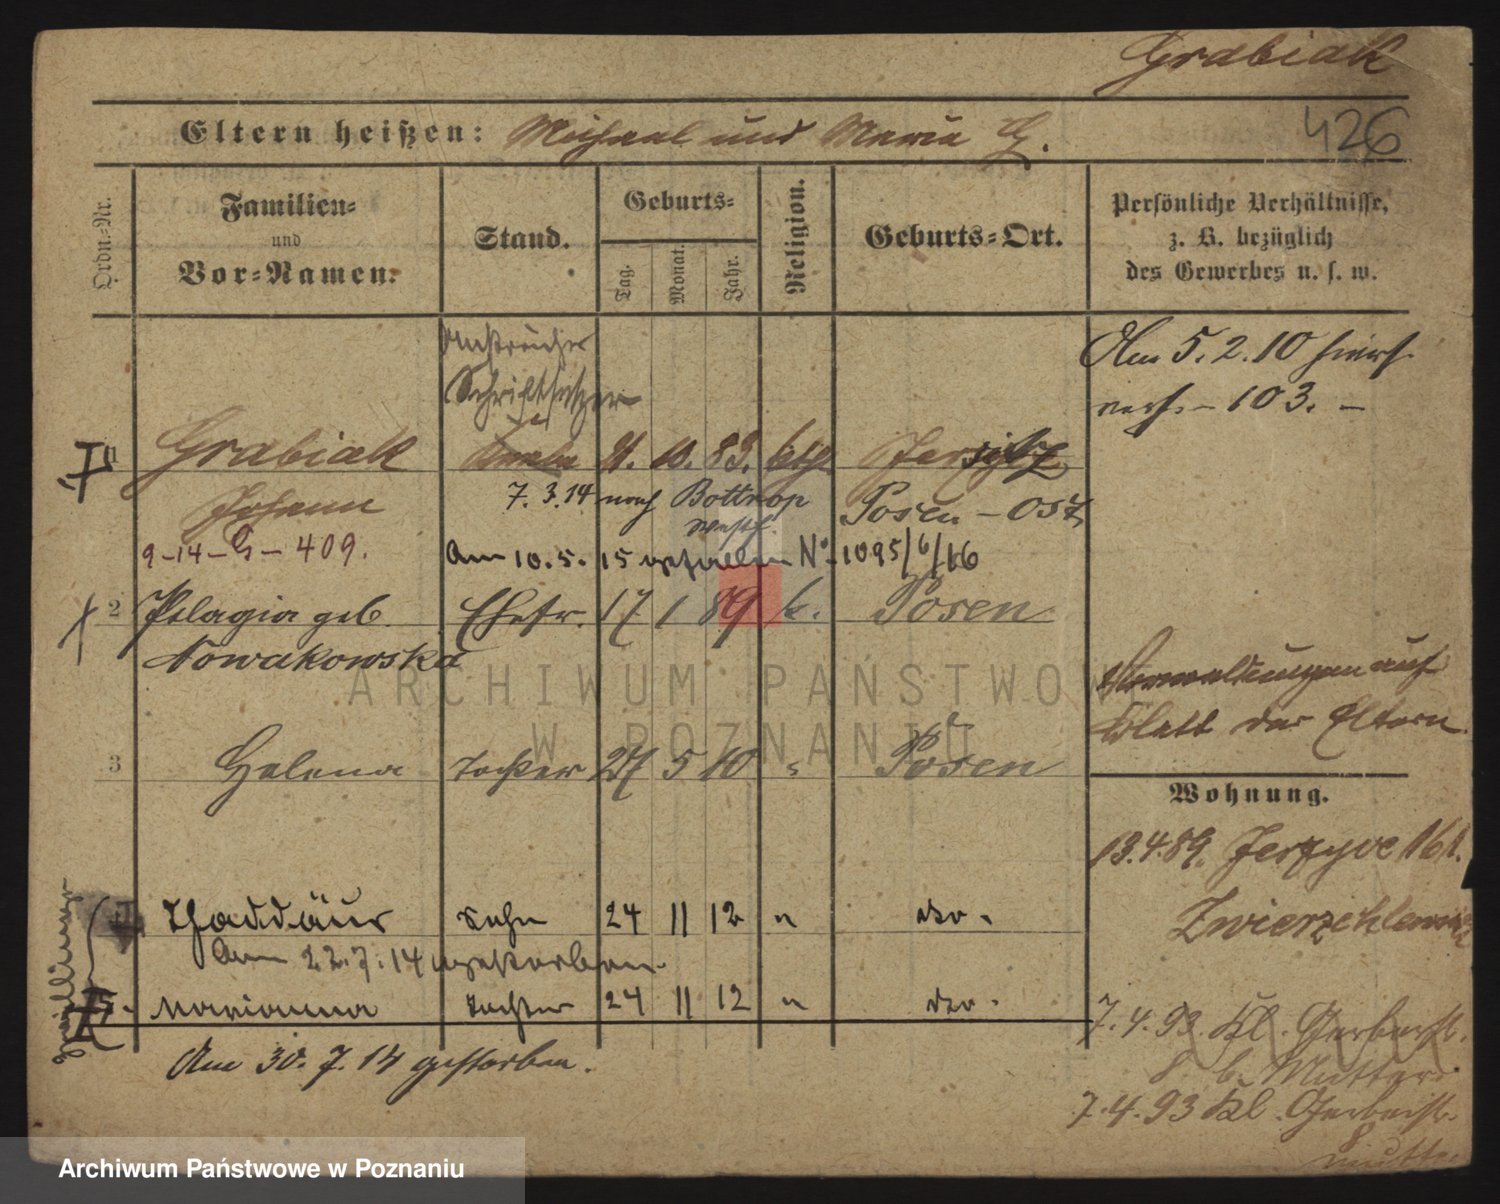 Grabiak
Eltern heißen: Michael und Maria G.
426
Ordn.-Nr.
Familien-
und
Vor-Namen.
Stand.
Geburts-
Tag.
Monat.
Jahr.
Religion.
Geburts-Ort.
Persönliche Verhältnisse,
z. B. bezüglich
des Gewerbes u. s. w.
Anstreicher
Schriftsetzer
Am 5. 2. 10
verh. - 103. -
1 Grabiak Knabe 21. 10. 83. ktg. Jersitz
Johann 7. 3. 14 nach Bottrop Posen - Ost
Westf.
9-14-G-409. Am 10. 5. 15 gefallen No. 1095/6/16
2 Pelagia geb. Ehefr. 17 1 89 k. Posen
Nowakowska
3 Helena Tochter 27 5 10 " Posen
Blatt der Eltern.
Wohnung.
13.4.89. Jerzyce 161.
Zwillinge
4 Thaddäus Sohn 24 11 12 " dto.
Am 22. 7. 14 gestorben.
5. Marianna Tochter 24 11 12 " dto.
Am 30. 7. 14 gestorben.
7. 4. 93 Kl. Gerberst.
8 b. Mutter.
7. 4. 93 Kl. Gerberstr.
8 Mutter
ARCHIWUM PAŃSTWOWE
W POZNANIU
Archiwum Państwowe w Poznaniu